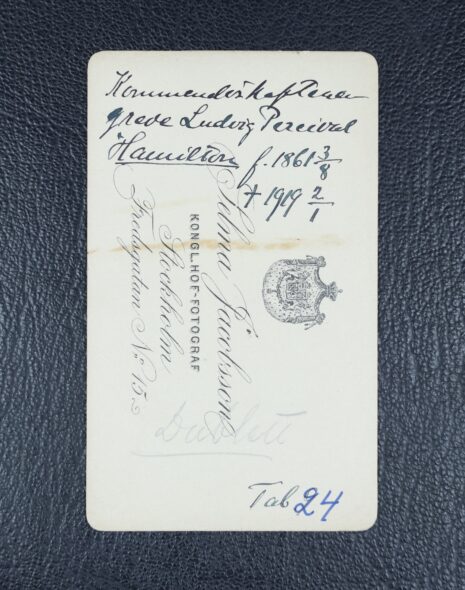 Kommendörkaptenen
greve Ludvig Percival
Hamilton f. 1861 3/8
† 1919 2/1
Selma Jacobsson
KONGL. HOF-FOTOGRAF
Stockholm
Fredsgatan No 15.
Dublett
Tab 24